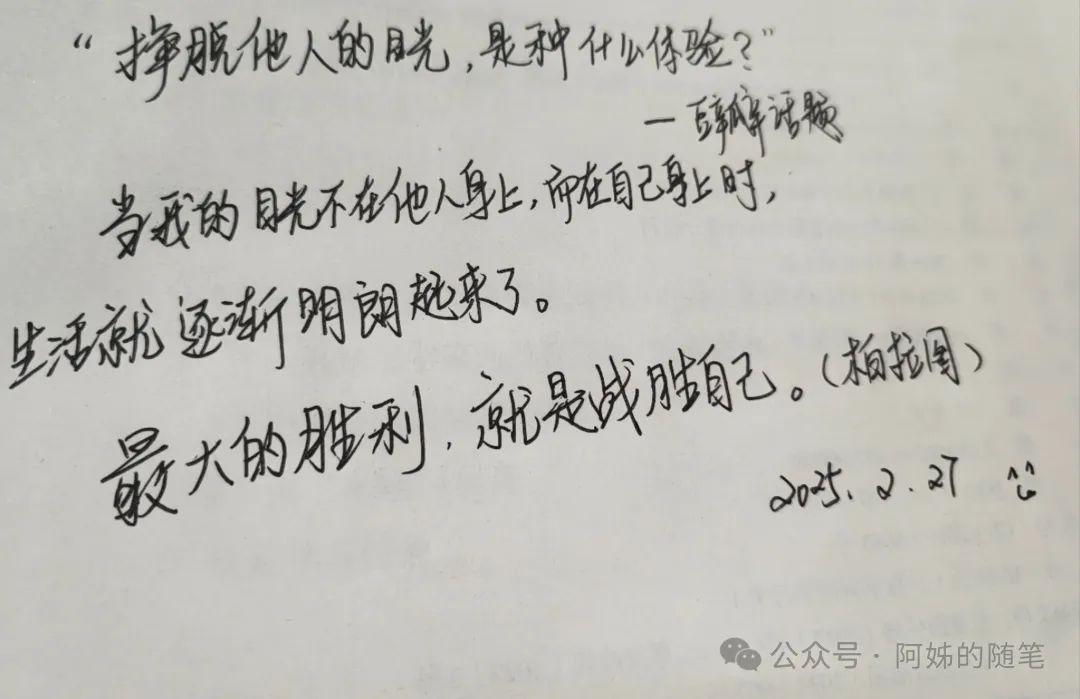 “挣脱他人的目光，是种什么体验？”
— 豆瓣话题
当我的目光不在他人身上，而在自己身上时，
生活就逐渐明朗起来了。
最大的胜利，就是战胜自己。（柏拉图）
2025.2.27
公众号·阿姊的随笔